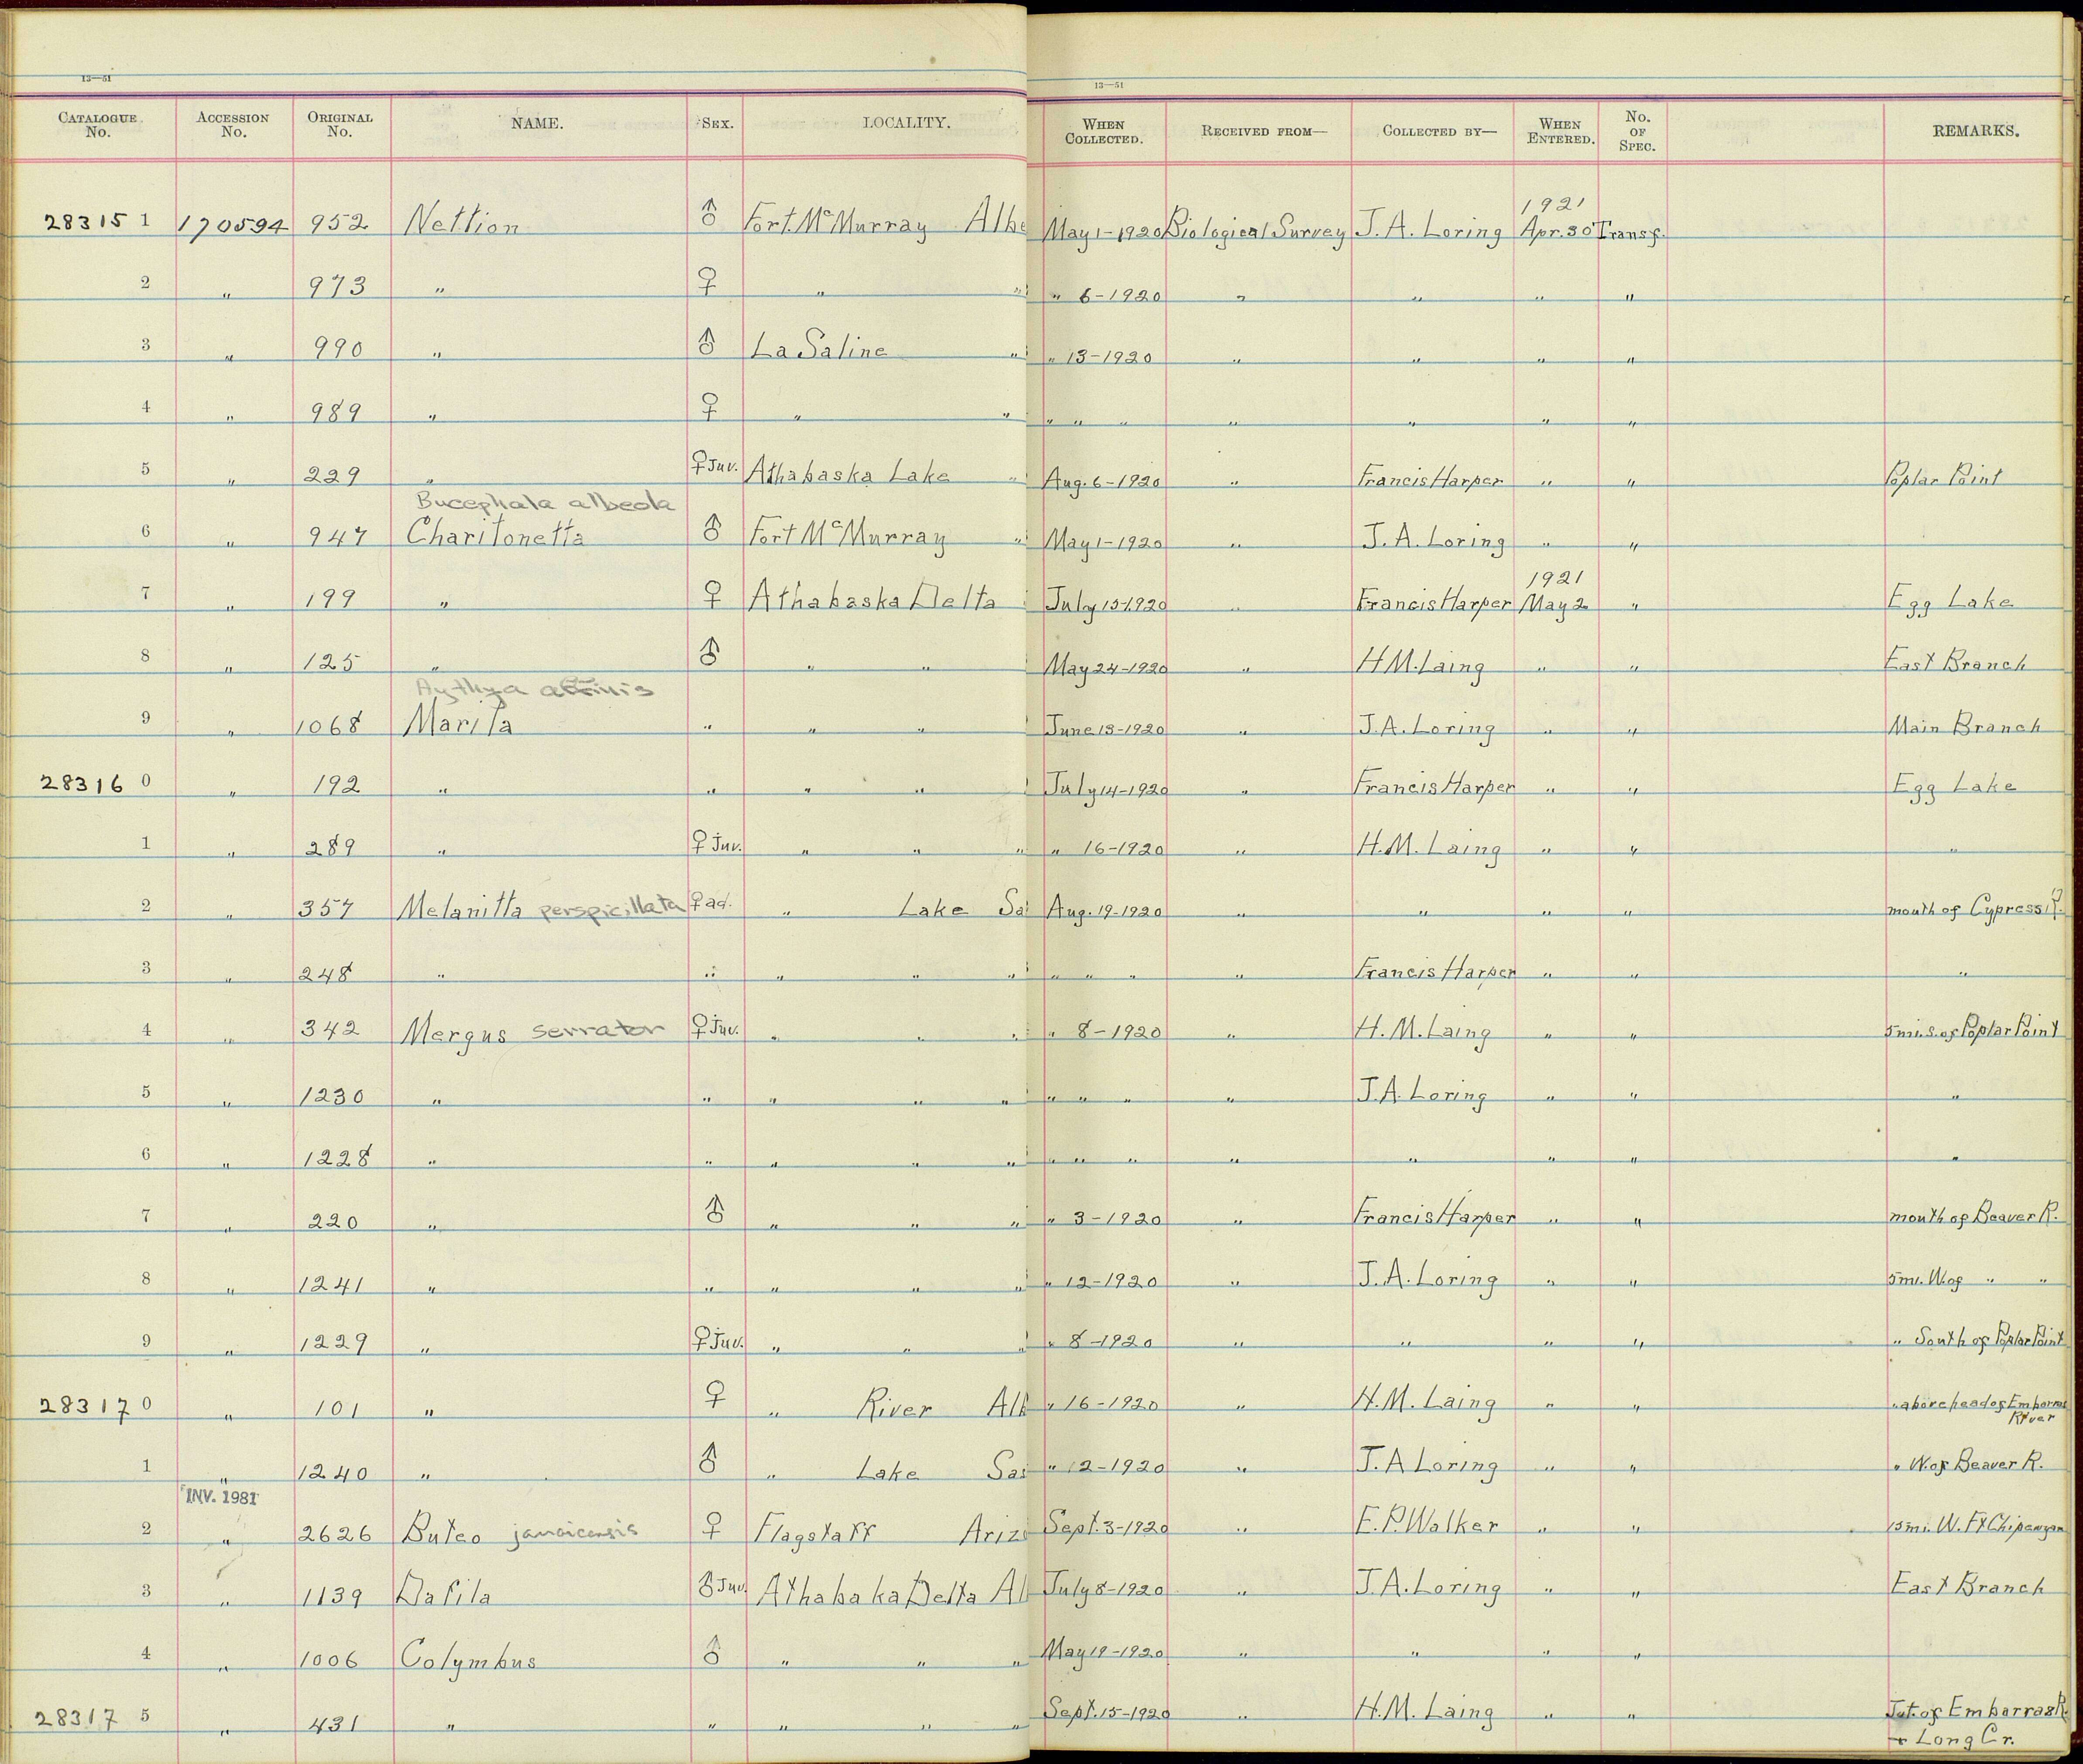 13—51 13—51
CATALOGUE No. ACCESSION No. ORIGINAL No. NAME. SEX. LOCALITY. WHEN COLLECTED. RECEIVED FROM— COLLECTED BY— WHEN ENTERED. No. OF SPEC. REMARKS.
1921
28315 1 170594 952 Nettion ♂ Fort McMurray Albe May 1-1920 Biological Survey J.A. Loring Apr. 30 Transf.
2 " 973 " ♀ " " " 6-1920 " " " "
3 " 990 " ♂ La Saline " " 13-1920 " " " "
4 " 989 " ♀ " " " " " " " " "
5 " 229 " ♀ Juv. Athabaska Lake " Aug. 6-1920 " Francis Harper " " Poplar Point
Bucephala albeola
6 " 947 Charitonetta ♂ Fort McMurray " May 1-1920 " J.A. Loring " "
1921
7 " 199 " ♀ Athabaska Delta July 15-1920 " Francis Harper May 2 " Egg Lake
8 " 125 " ♂ " " May 24-1920 " H.M. Laing " " East Branch
Aythya affinis
9 " 1068 Marila " " " June 13-1920 " J.A. Loring " " Main Branch
28316 0 " 192 " " " " July 14-1920 " Francis Harper " " Egg Lake
1 " 289 " ♀ Juv. " " " " 16-1920 " H.M. Laing " " "
2 " 357 Melanitta perspicillata ♀ ad. " Lake Sa Aug. 19-1920 " " " " mouth of Cypress R.
3 " 248 " " " " " " " " " Francis Harper " " "
4 " 342 Mergus serrator ♀ Juv. " " " " 8-1920 " H.M. Laing " " 5 mi. S. of Poplar Point
5 " 1230 " " " " " " " " " J.A. Loring " " "
6 " 1228 " " " " " " " " " " " " "
7 " 220 " ♂ " " " " 3-1920 " Francis Harper " " mouth of Beaver R.
8 " 1241 " " " " " " 12-1920 " J.A. Loring " " 5 mi. W. of " "
9 " 1229 " ♀ Juv. " " " " 8-1920 " " " " " South of Poplar Point
28317 0 " 101 " ♀ " River Alb " 16-1920 " H.M. Laing " " " above head of Embarras
River
1 " 1240 " ♂ " Lake Sas " 12-1920 " J.A. Loring " " " W. of Beaver R.
INV. 1981
2 " 2626 Buteo jamaicensis ♀ Flagstaff Ariz Sept. 3-1920 " E.P. Walker " " 15 mi. W. Ft Chipewyan
3 " 1139 Dafila ♂ Juv. Athabaka Delta Al July 8-1920 " J.A. Loring " " East Branch
4 " 1006 Colymbus ♂ " " " May 19-1920 " " " "
28317 5 " 431 " " " " " Sept. 15-1920 " H.M. Laing " " Jct. of Embarras R.
+ Long Cr.